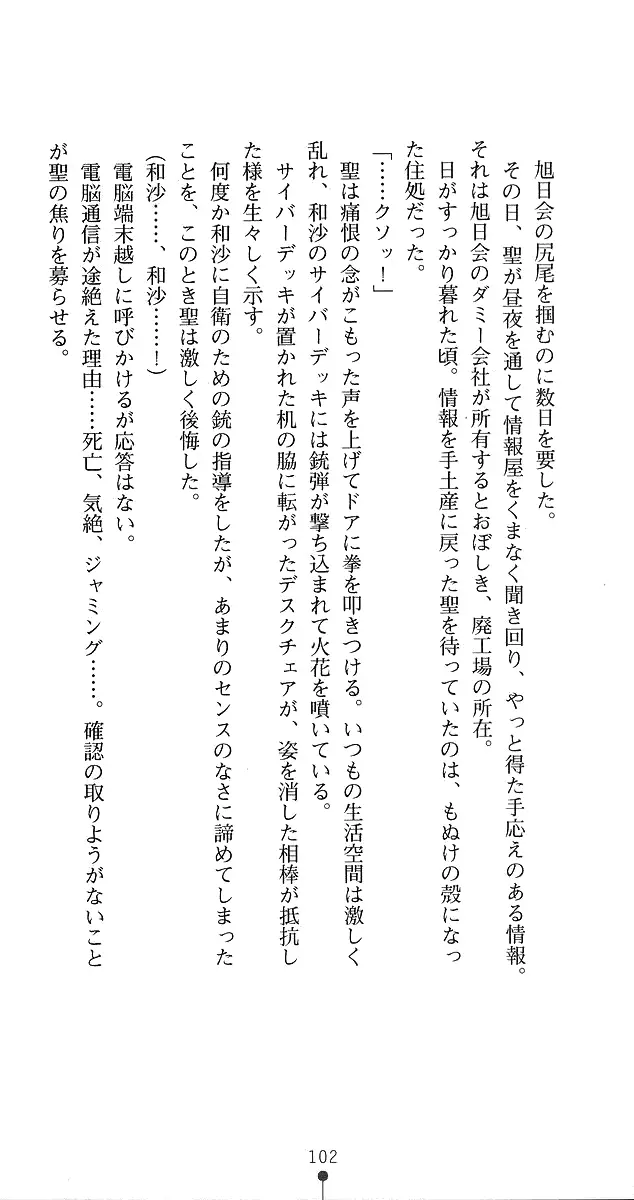 旭日会の尻尾を掴むのに数日を要した。
その日、聖が昼夜を通して情報屋をくまなく聞き回り、やっと得た手応えのある情報。
それは旭日会のダミー会社が所有するとおぼしき、廃工場の所在。
日がすっかり暮れた頃。情報を手土産に戻った聖を待っていたのは、もぬけの殻になっ
た住処だった。
「……クソッ！」
聖は痛恨の念がこもった声を上げてドアに拳を叩きつける。いつもの生活空間は激しく
乱れ、和沙のサイバーデッキには銃弾が撃ち込まれて火花を噴いている。
サイバーデッキが置かれた机の脇に転がったデスクチェアが、姿を消した相棒が抵抗し
た様を生々しく示す。
何度か和沙に自衛のための銃の指導をしたが、あまりのセンスのなさに諦めてしまった
ことを、このとき聖は激しく後悔した。
（和沙……、和沙……！）
電脳端末越しに呼びかけるが応答はない。
電脳通信が途絶えた理由……死亡、気絶、ジャミング……。確認の取りようがないこと
が聖の焦りを募らせる。
102